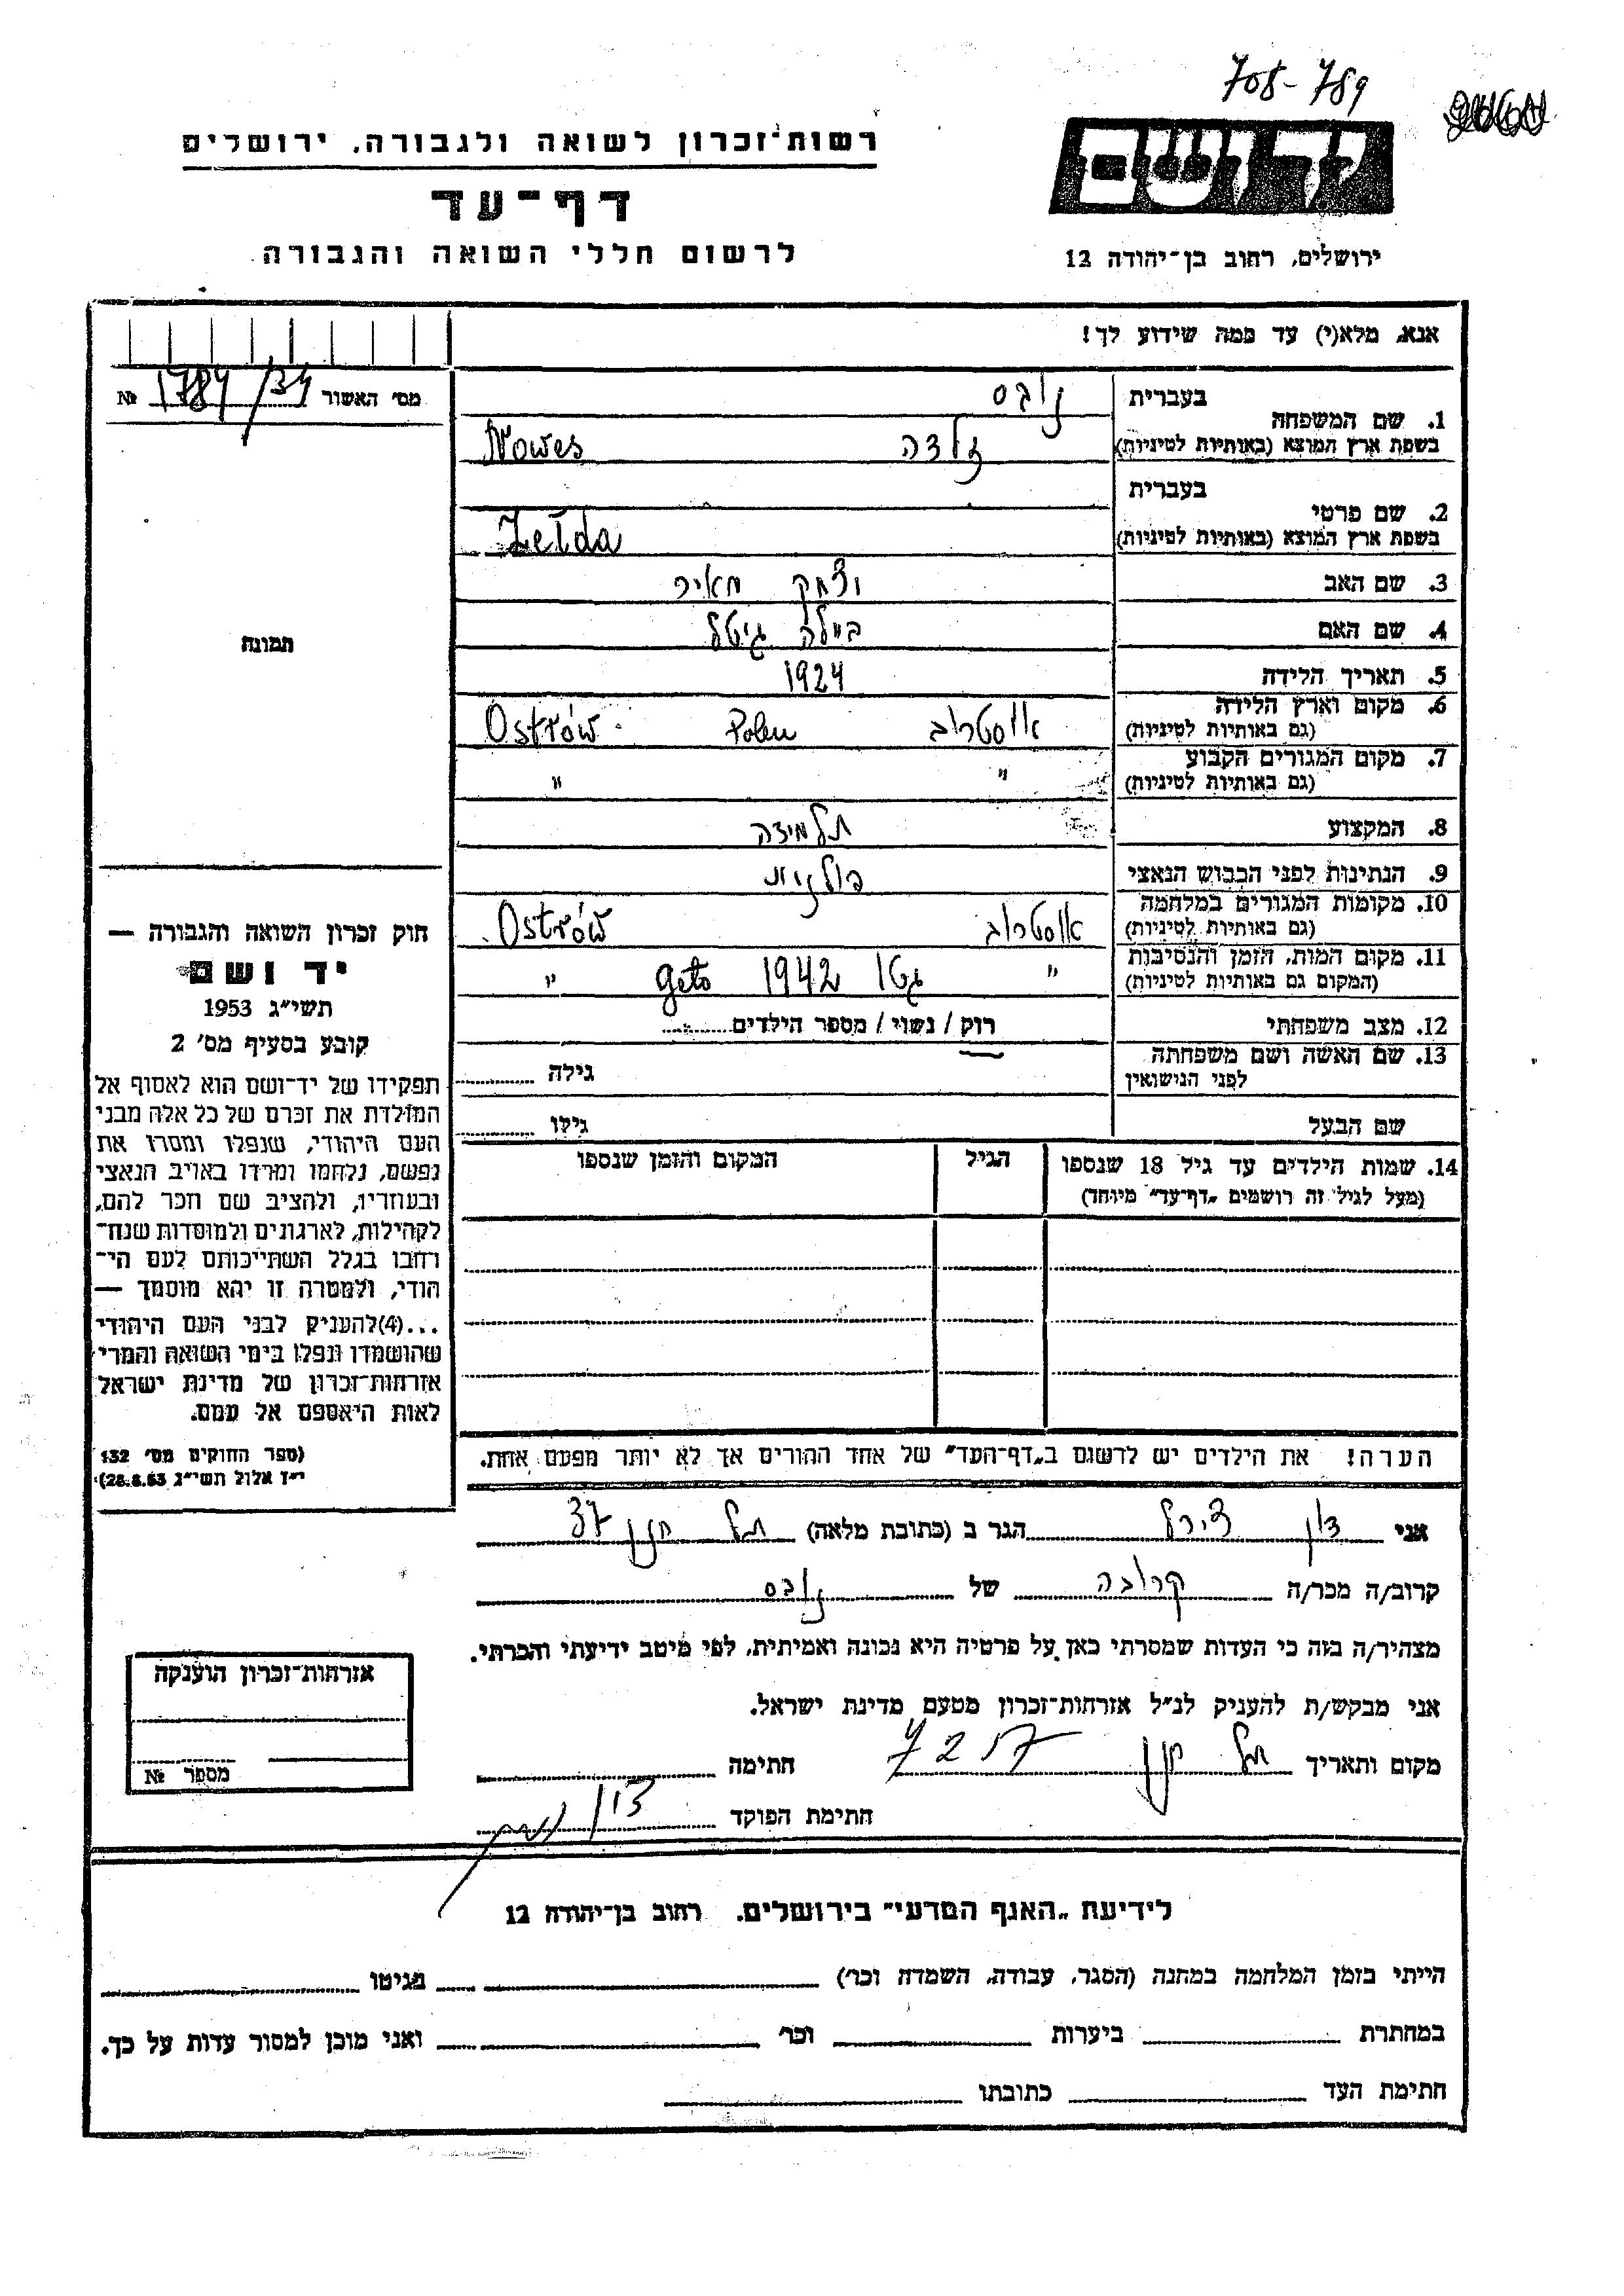 708-789
רשות־זכרון לשואה ולגבורה, ירושלים
דף־עד
לרשום חללי השואה והגבורה
יד ושם
ירושלים, רחוב בן־יהודה 12
אנא, מלא(י) עד כמה שידוע לך!
מס׳ האשור 1784/34 №
תמונה
1. שם המשפחה
בעברית נובס
בשפת ארץ המוצא (באותיות לטיניות) זלדה Nowes
2. שם פרטי
בעברית
בשפת ארץ המוצא (באותיות לטיניות) Zelda
3. שם האב יצחק מאיר
4. שם האם ביילה גיטל
5. תאריך הלידה 1924
6. מקום וארץ הלידה
(גם באותיות לטיניות) אוסטרוב Polen Ostrów
7. מקום המגורים הקבוע
(גם באותיות לטיניות) " "
8. המקצוע תלמידה
9. הנתינות לפני הכבוש הנאצי פולנית
10. מקומות המגורים במלחמה
(גם באותיות לטיניות) אוסטרוב Ostrów
11. מקום המות, הזמן והנסיבות
(המקום גם באותיות לטיניות) " גטו 1942 geto "
12. מצב משפחתי רוק / נשוי / מספר הילדים
13. שם האשה ושם משפחתה
לפני הנישואין גילה
שם הבעל גילו
14. שמות הילדים עד גיל 18 שנספו
(מעל לגיל זה רושמים „דף־עד״ מיוחד)
הגיל
המקום והזמן שנספו
חוק זכרון השואה והגבורה —
יד ושם
תשי״ג 1953
קובע בסעיף מס׳ 2
תפקידו של יד־ושם הוא לאסוף אל
המולדת את זכרם של כל אלה מבני
העם היהודי, שנפלו ומסרו את
נפשם, נלחמו ומרדו באויב הנאצי
ובעוזריו, ולהציב שם וזכר להם,
לקהילות, לארגונים ולמוסדות שנח־
רבו בגלל השתייכותם לעם הי־
הודי, ולמטרה זו יהא מוסמך —
...(4)להעניק לבני העם היהודי
שהושמדו ונפלו בימי השואה והמרי
אזרחות־זכרון של מדינת ישראל
לאות היאספם אל עמם.
(ספר החוקים מס׳ 132
י״ז אלול תשי״ג 28.8.53)
הערה! את הילדים יש לרשום ב„דף־העד״ של אחד ההורים אך לא יותר מפעם אחת.
אני דון צירל הגר ב (כתובת מלאה) תל חנן 37
קרוב/ה מכר/ה קרובה של נובס
מצהיר/ה בזה כי העדות שמסרתי כאן על פרטיה היא נכונה ואמיתית, לפי מיטב ידיעתי והכרתי.
אני מבקש/ת להעניק לנ״ל אזרחות־זכרון מטעם מדינת ישראל.
מקום ותאריך תל חנן חתימה
חתימת הפוקד
אזרחות־זכרון הוענקה
מספר №
לידיעת „האגף המדעי״ בירושלים, רחוב בן־יהודה 12
הייתי בזמן המלחמה במחנה (הסגר, עבודה, השמדה וכו׳) בגיטו
במחתרת ביערות וכו׳ ואני מוכן למסור עדות על כך.
חתימת העד כתובתו